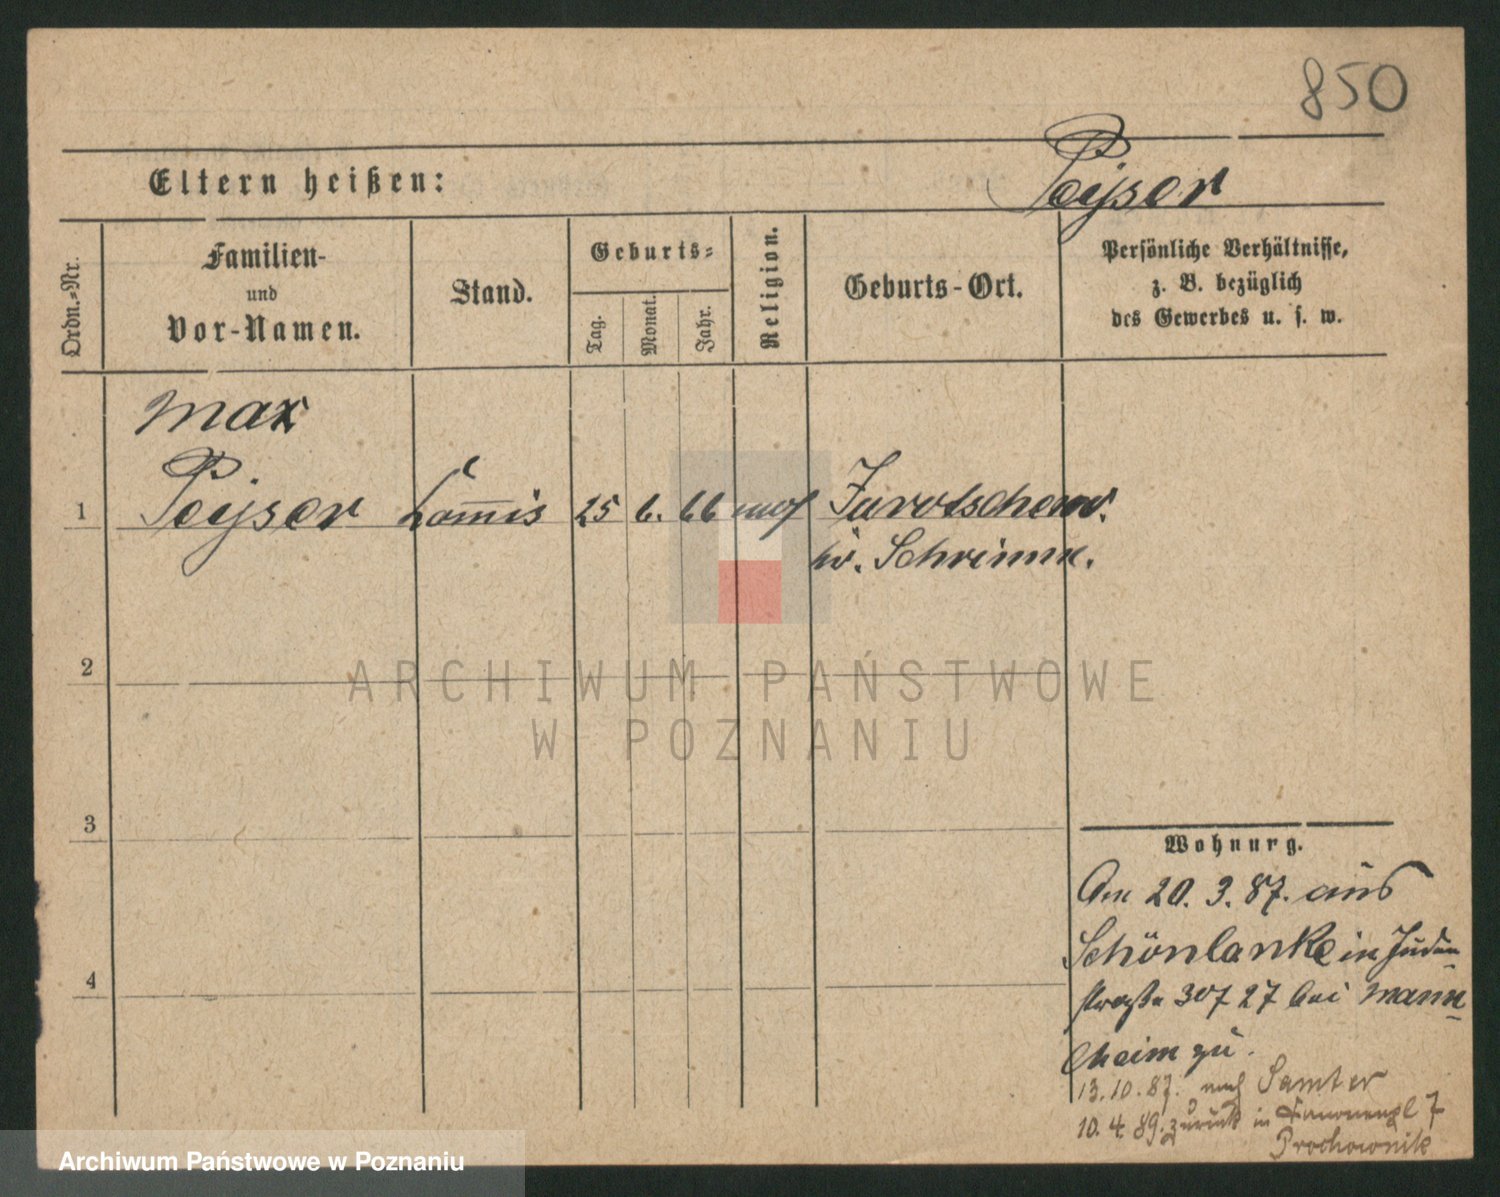 850
Eltern heißen:
Peyser
Ordn.=Nr.
Familien-
und
Vor-Namen.
Stand.
Geburts=
Tag.
Monat.
Jahr.
Religion.
Geburts-Ort.
Persönliche Verhältnisse,
z. B. bezüglich
des Gewerbes u. s. w.
Max
1 Peyser Com̅is 25 6. 66 mos Jarotschew.
Kr. Schrimm.
2
3
4
ARCHIWUM PAŃSTWOWE
W POZNANIU
Wohnung.
Am 20. 3. 87. aus
Schönlanke in Juden
straße 30/ 27 bei Mann
heim zu.
13.10.87. nach Samter
10.4.89. zurück in 7
Prochownik
Archiwum Państwowe w Poznaniu